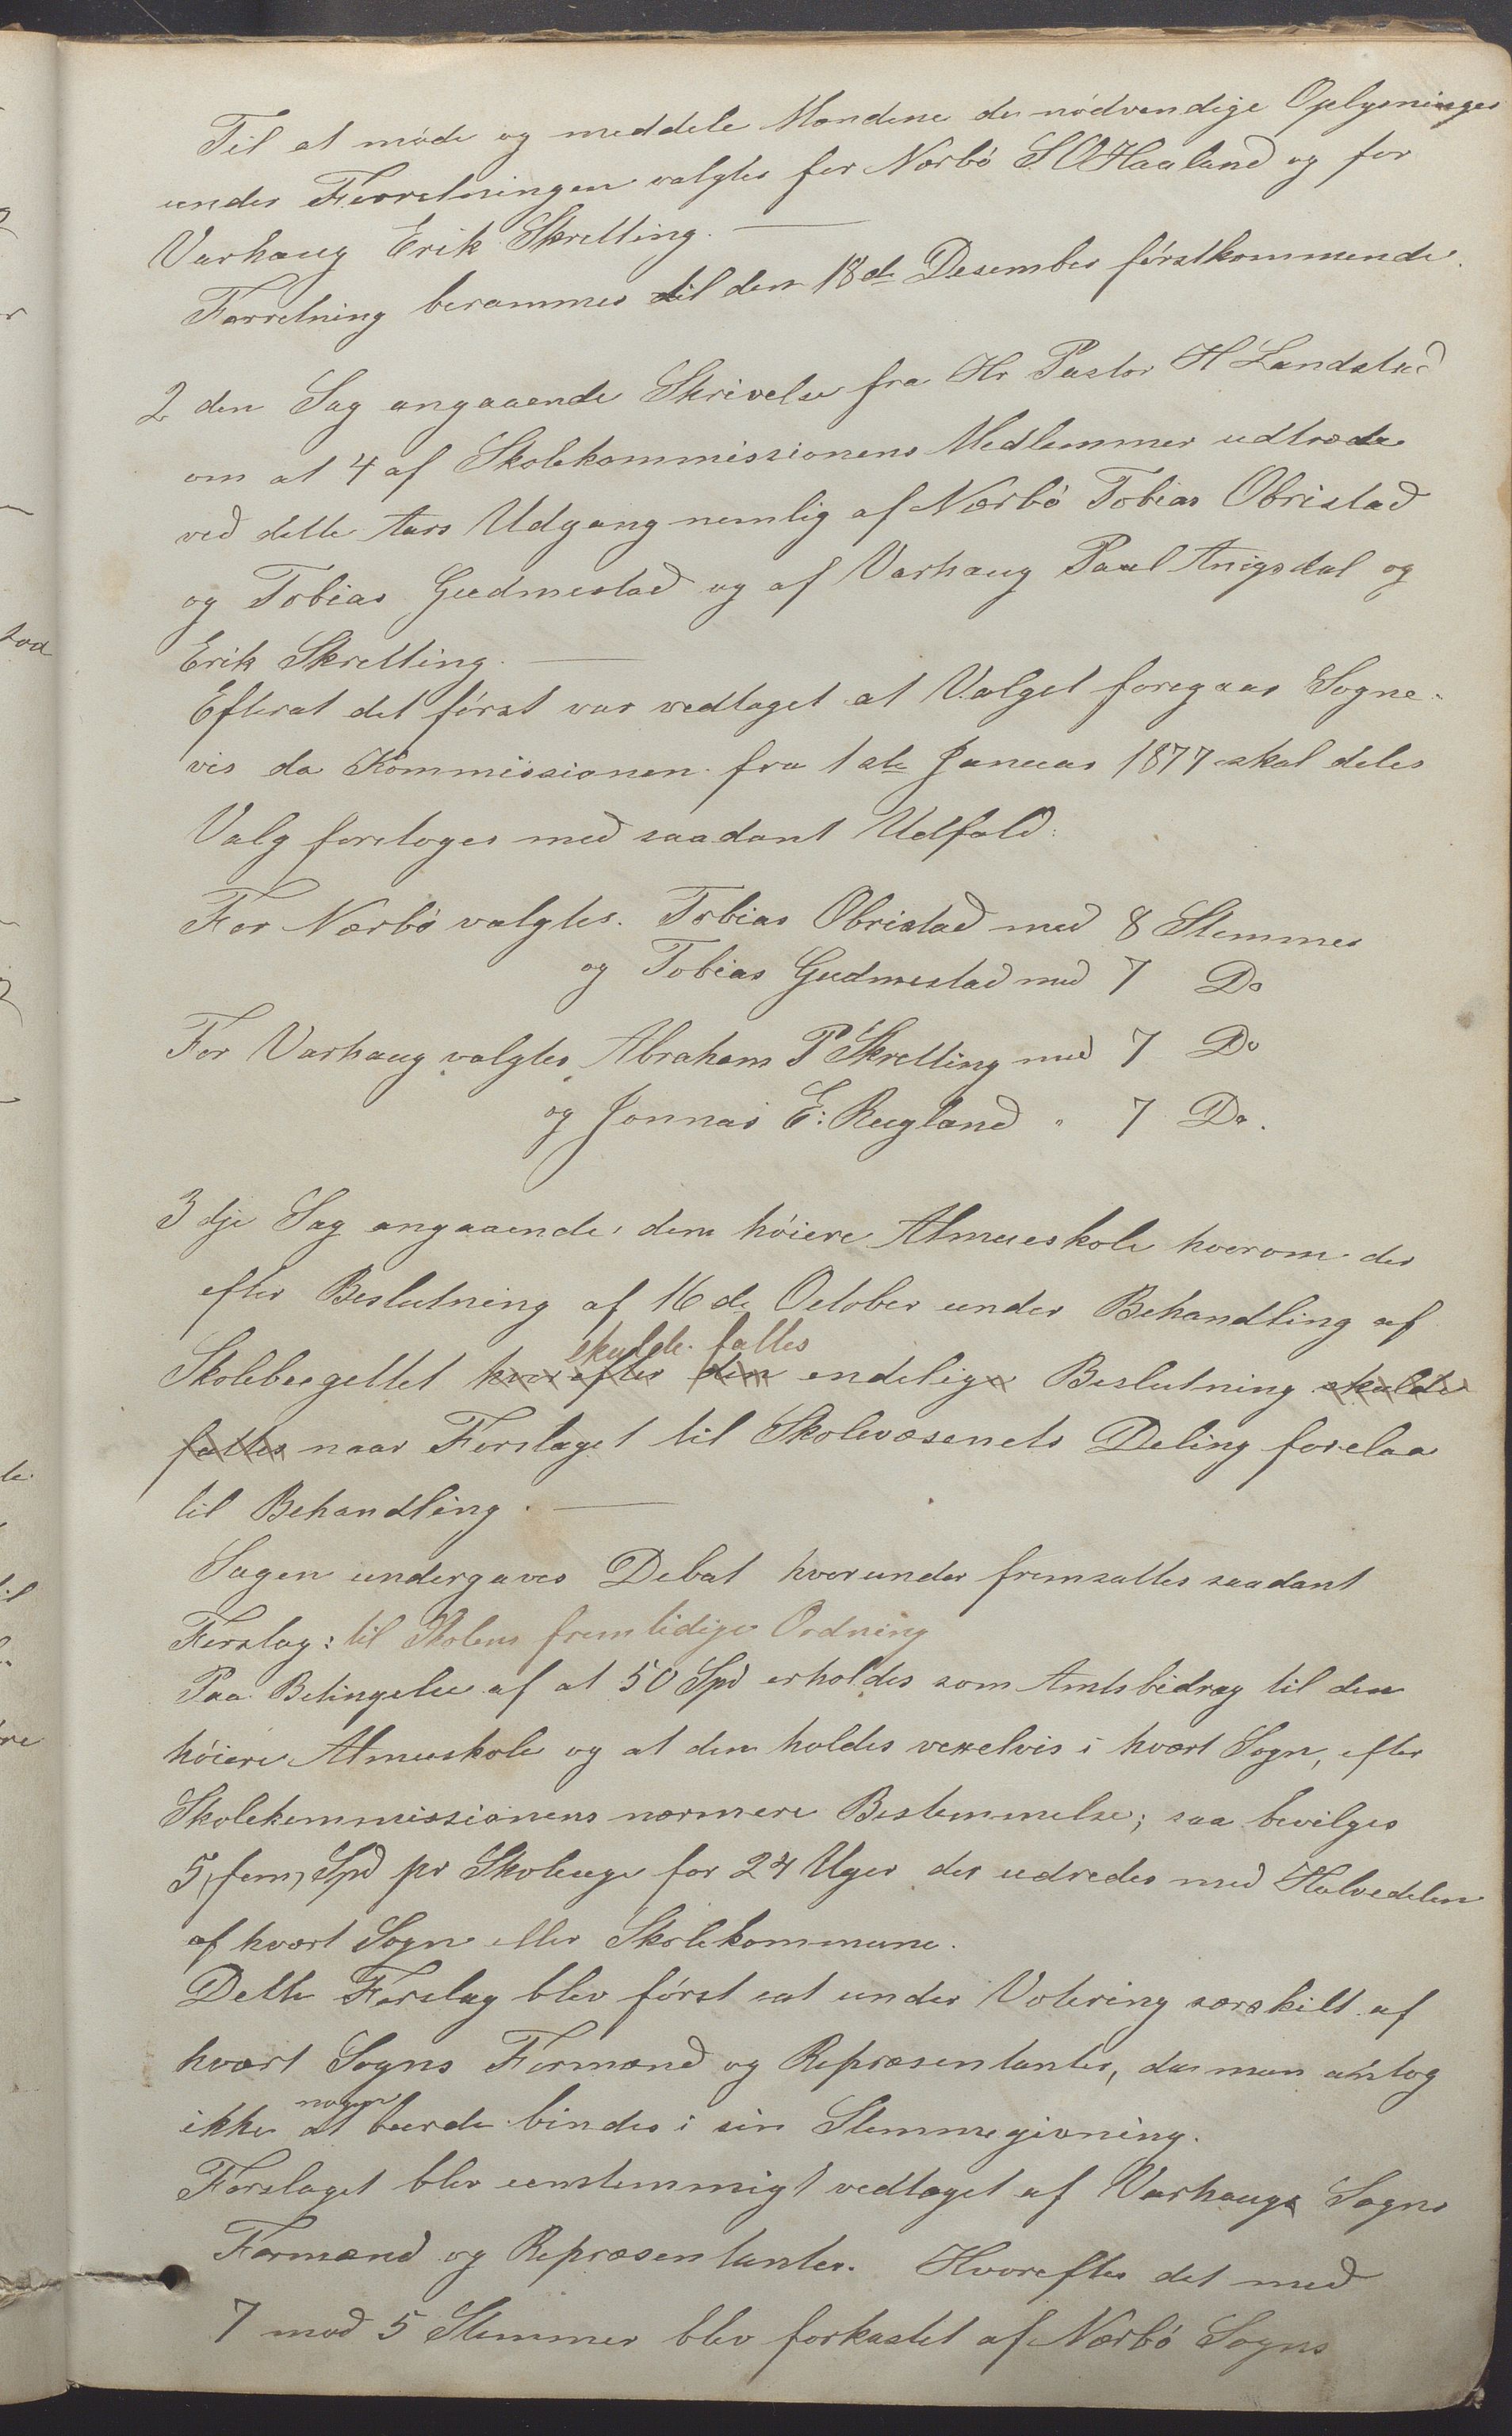 Til at møde og meddele Mændene de nødvendige Oplysninger
under Forretningen valgtes for Nærbø S. O Haaland og for
Varhaug Erik Skretting. —
Forretning berammes til den 18de Desember førstkommende.
2 den Sag angaaende Skrivelse fra Hr Pastor H Landstad
om at 4 af Skolekommissionens Medlemmer udtræde
ved dette Aars Udgang nemlig af Nærbø Tobias Obristad
og Tobias Gudmestad og af Varhaug Paul Anigsdal og
Erik Skretting. —
Efterat det først var vedtaget at Valget foregaar Sogne-
vis da Kommissionen fra 1ste Januar 1877 skal deles
Valg foretoges med saadant Udfald:
For Nærbø valgtes. Tobias Obristad med 8 Stemmer
og Tobias Gudmestad med 7 Do
For Varhaug valgtes Abraham P Skretting med 7 Do
og Jonnas E: Rugland " 7 Do.
3 dje Sag angaaende den høiere Almueskole hvorom der
efter Beslutning af 16de October under Behandling af
skulde fattes
Skolebugettet hvorefter den endelige Beslutning skulde
fattes naar Forslaget til Skolevæsenets Deling forelaa
til Behandling. —
Sagen undergaves Debat hvorunder fremsattes saadant
Forslag: til Skolens fremtidige Ordning
Paa Betingelse af at 50 Spd erholdes som Amtsbidrag til den
høiere Almueskole og at den holdes vexelvis i hvært Sogn, efter
Skolekommissionens nærmere Bestemmelse; saa bevilges
5, fem, Spd pr Skoleuge for 24 Uger der udredes med Halvedelen
af hvært Sogn eller Skolekommune.
Dette Forslag blev først sat under Votering særskilt af
hvært Sogns Formænd og Repræsentanter, da man antog
nogen
ikke at burde bindes i sin Stemmegivning.
Forslaget blev eenstemmigt vedtaget af Varhaugs Sogns
Formænd og Repræsentanter. Hvorefter det med
7 mod 5 Stemmer blev forkastet af Nærbø Sogns